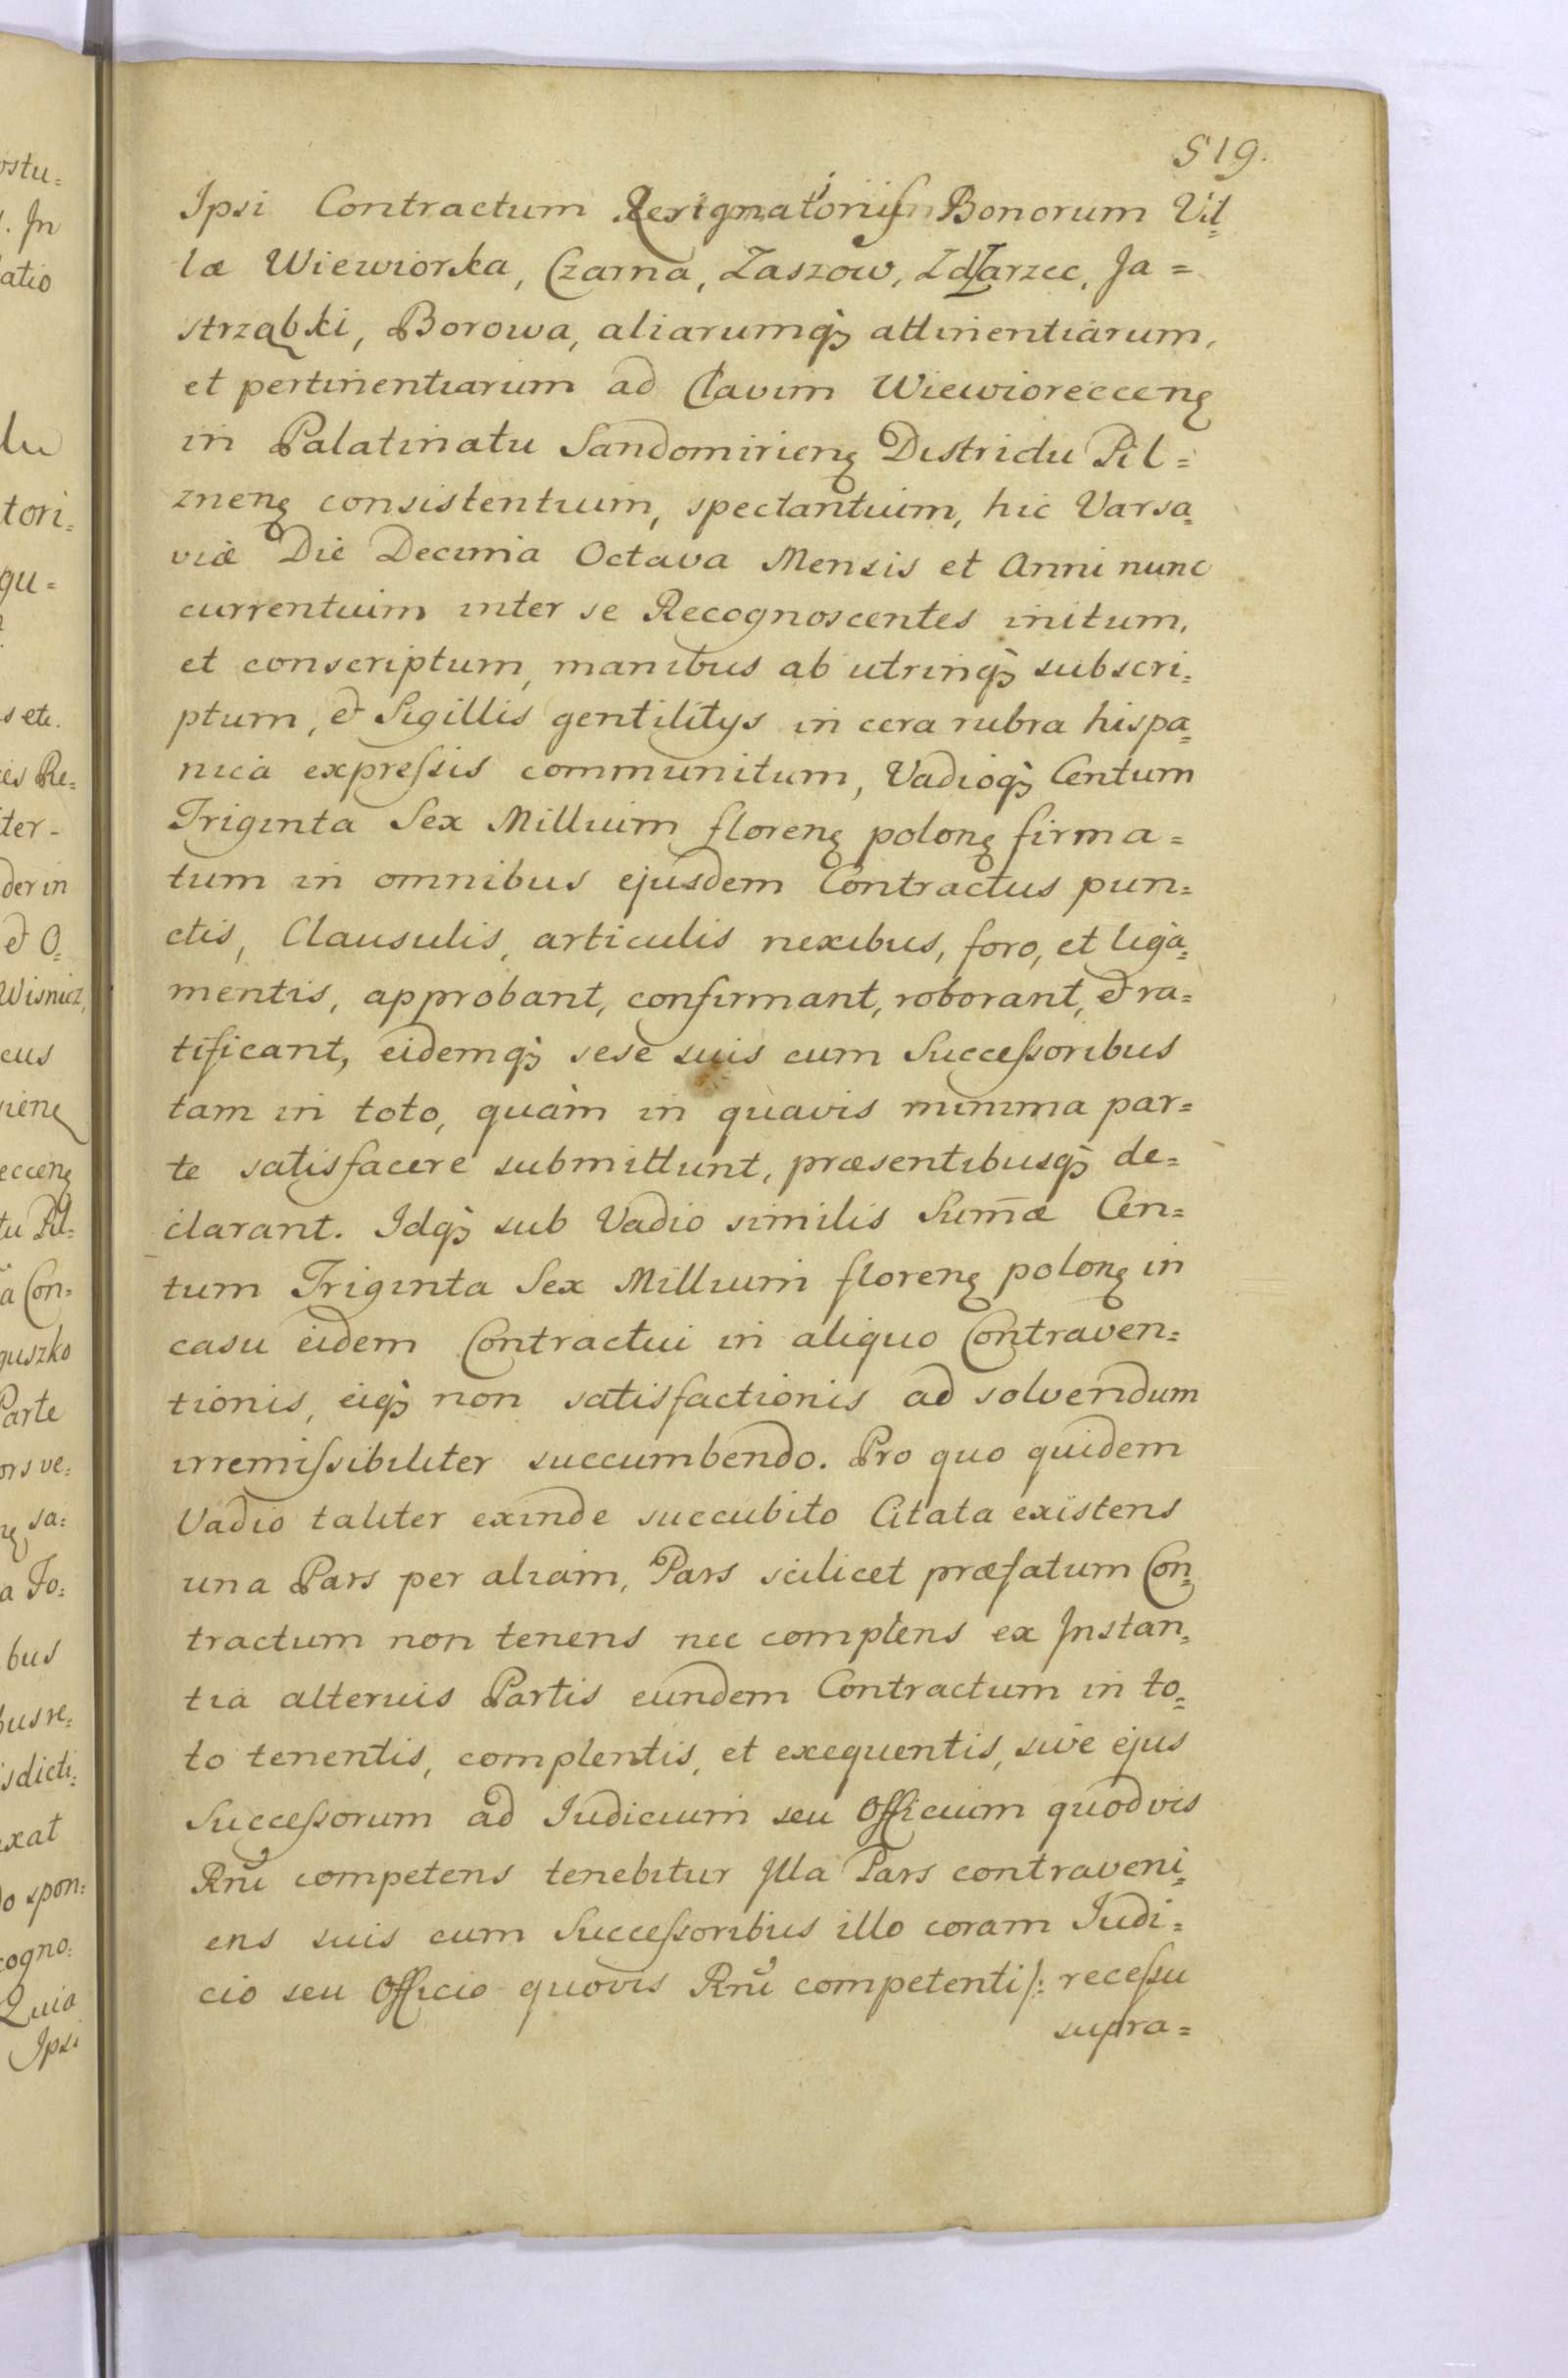 519.
Ipsi Contractum Resignatorium Bonorum Vil=
læ Wiewiorska, Czarna, Zaszow, Zdzarzec, Ja=
strząbki, Borowa, aliarumq3 attinentiarum,
et pertinentiarum ad Clavim Wiewioreccenę
in Palatinatu Sandomirienę Districtu Pil=
znenę consistentium, spectantium, hic Varsa=
viæ Die Decima Octava Mensis et Anni nunc
currentium inter se Recognoscentes initum,
et conscriptum, manibus ab utrinq3 subscri=
ptum, & Sigillis gentilitys in cera rubra hispa=
nica expreſsis communitum, Vadioq3 Centum
Triginta Sex Millium florenę polonę firma=
tum in omnibus ejusdem Contractus pun=
ctis, Clausulis, articulis nexibus, foro, et liga=
mentis, approbant, confirmant, roborant, & ra=
tificant, eidemq3 sese suis cum Succeſsoribus
tam in toto, quàm in quavis minima par=
te satisfacere submittunt, præsentibusq3 de=
clarant. Idq3 sub Vadio similis Sum̄æ Cen=
tum Triginta Sex Millium florenę polonę in
casu eidem Contractui in aliquo Contraven=
tionis, eiq3 non satisfactionis ad solvendum
irremiſsibiliter succumbendo. Pro quo quidem
Vadio taliter exinde succubito Citata existens
una Pars per aliam, Pars scilicet præfatum Con=
tractum non tenens nec complens ex Instan=
tia alterius Partis eundem Contractum in to=
to tenentis, complentis, et exequentis, sive ejus
Succeſsorum ad Iudicium seu Officium quodvis
Rnĩ competens tenebitur Illa Pars contraveni=
ens suis cum Succeſsoribus illo coram Iudi=
cio seu Officio quovis Rnĩ competenti /: receſsu
supra=